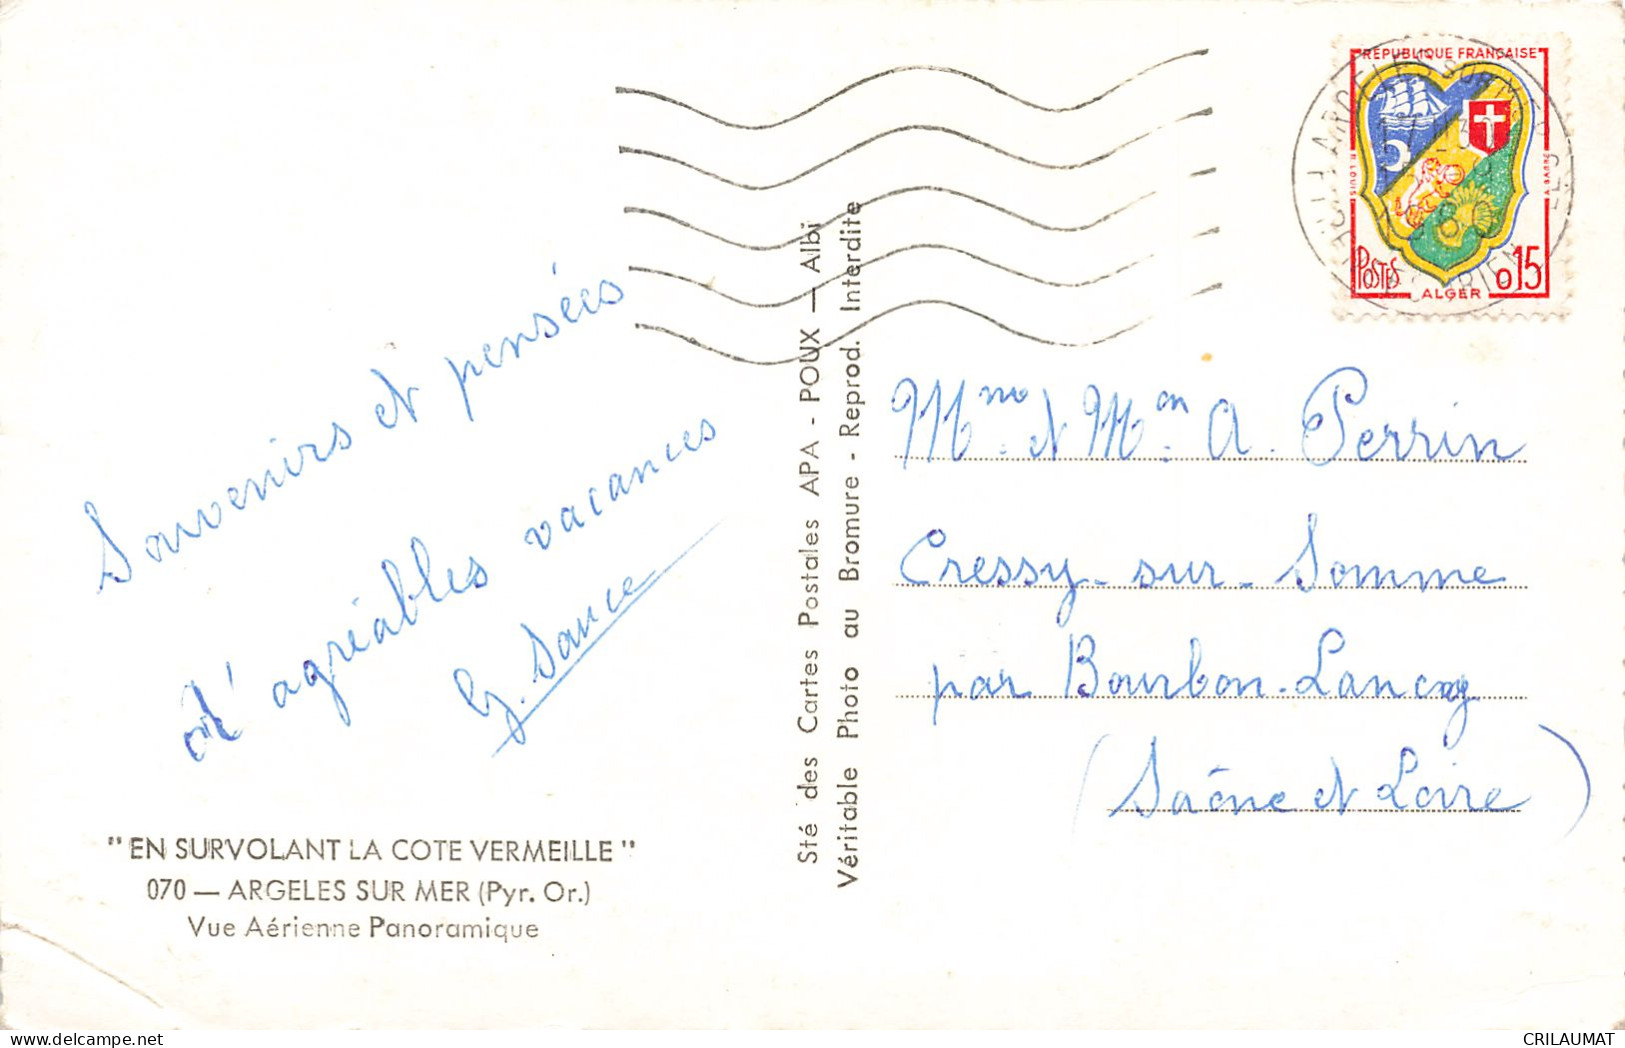 Souvenirs et pensées
d'agréables vacances
G. Sauce
"EN SURVOLANT LA COTE VERMEILLE"
070 — ARGELES SUR MER (Pyr. Or.)
Vue Aérienne Panoramique
Sté des Cartes Postales APA - POUX — Albi
Véritable Photo au Bromure - Reprod. Interdite
RÉPUBLIQUE FRANÇAISE
POSTES
ALGER
0,15
Mme et Mon A. Perrin
Cressy-sur-Somme
par Bourbon-Lancy
(Saône et Loire)
CRILAUMAT